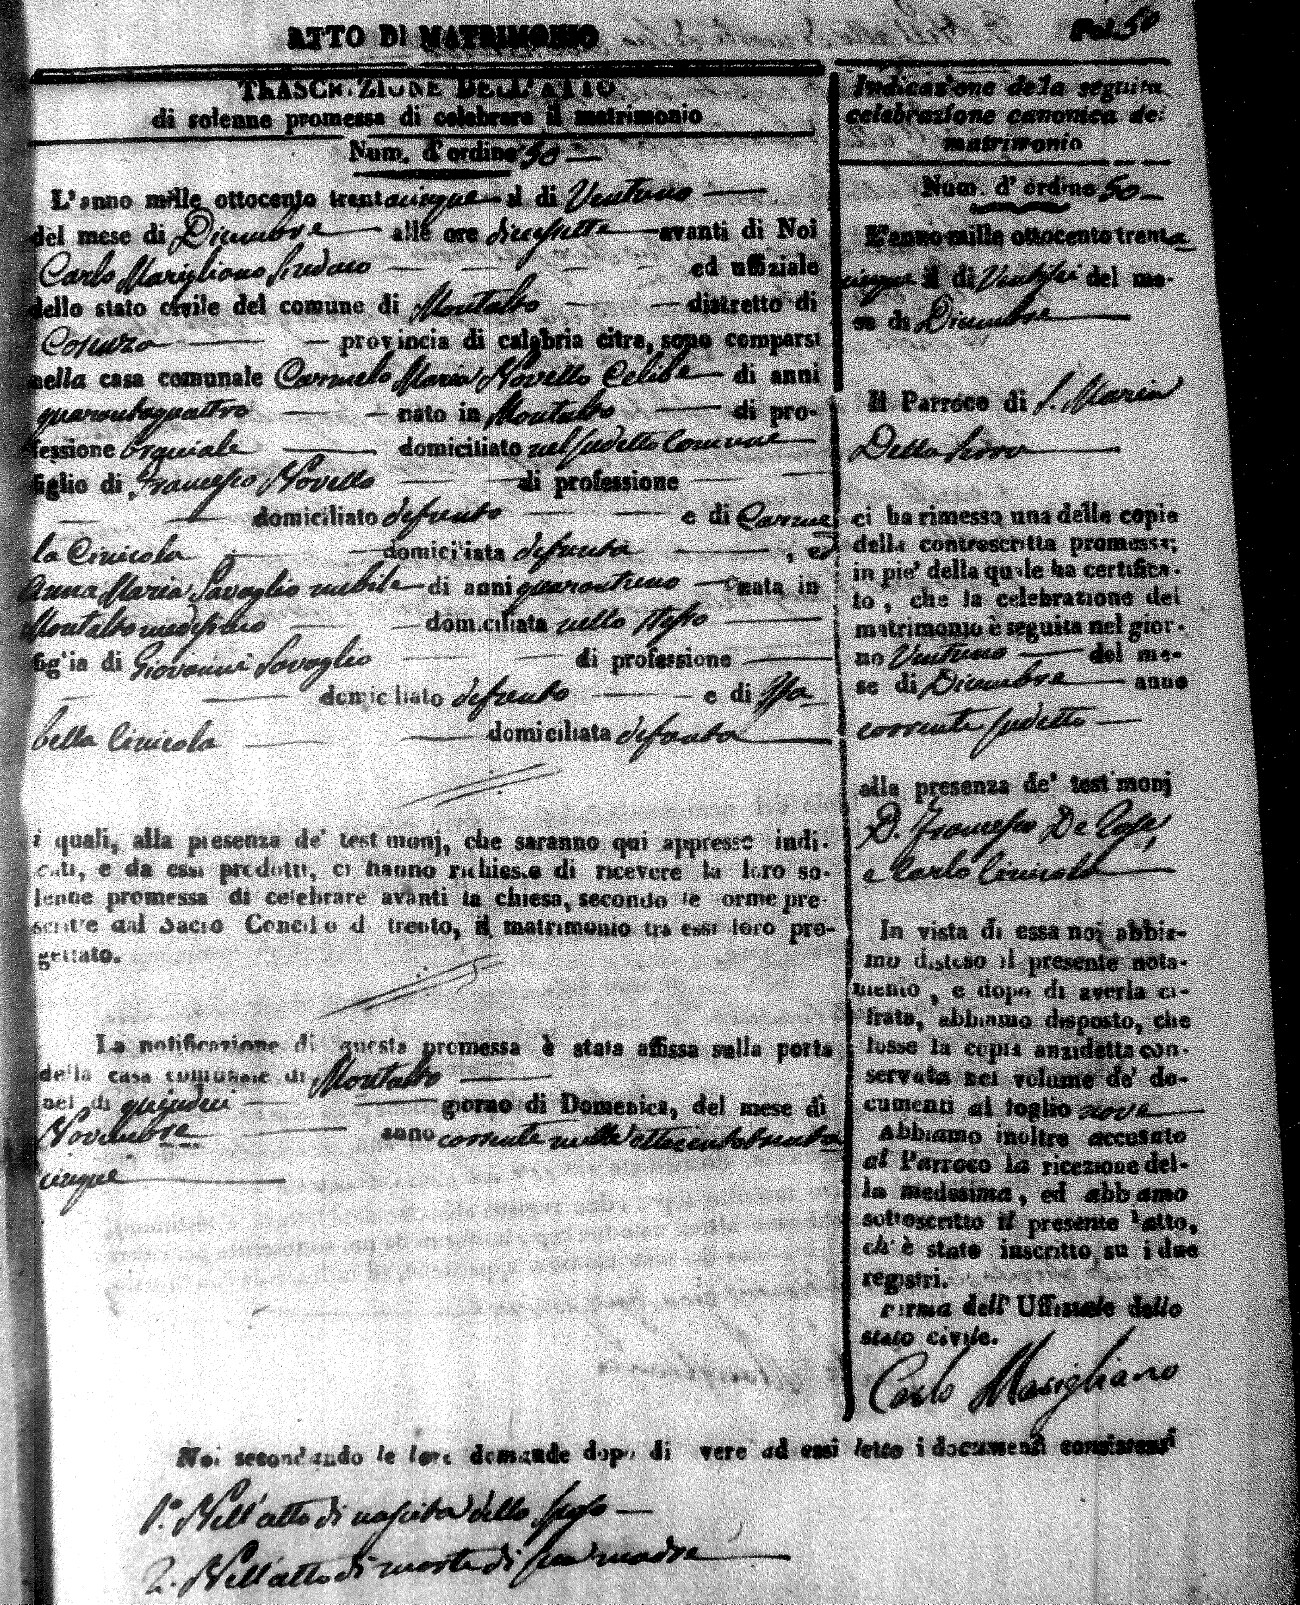 ATTO DI MATRIMONIO
Fol. 50
TRASCRIZIONE DELL'ATTO
di solenne promessa di celebrare il matrimonio
Num. d'ordine 50
L'anno mille ottocento trentacinque il di Ventuno
del mese di Dicembre alle ore diecisette avanti di Noi
Carlo Marigliano Sindaco ed uffiziale
dello stato civile del comune di Montalto distretto di
Cosenza provincia di calabria citra, sono comparsi
nella casa comunale Carmelo Maria Novello Celibe di anni
quarantaquattro nato in Montalto di pro-
fessione domiciliato nel sudetto Comune
figlio di Francesco Novello di professione
domiciliato defunto e di Carme
la Cinicola domiciliata defunta , ed
Anna Maria Savaglio nubile di anni quarantuno nata in
Montalto medesimo domiciliata nello stesso
figlia di Giovanni Savaglio di professione
domiciliato defunto e di Isa
bella Cinicola domiciliata defunta
i quali, alla presenza de' testimonj, che saranno qui appresso indi-
cati, e da essi prodotti, ci hanno richiesto di ricevere la loro so-
lenne promessa di celebrare avanti la chiesa, secondo le forme pre-
scritte dal Sacro Concilio di trento, il matrimonio tra essi loro pro-
gettato.
La notificazione di questa promessa è stata affissa sulla porta
della casa comunale di Montalto
nel di quindici giorno di Domenica, del mese di
Novembre anno corrente mille ottocento trenta
cinque
Indicazione della seguita
celebrazione canonica del
matrimonio
Num. d'ordine 50
L'anno mille ottocento trenta
cinque il di Ventisei del me-
se di Dicembre
Il Parroco di S. Maria
Della Serra
ci ha rimesso una delle copie
della controscritta promessa;
in pie' della quale ha certifica-
to, che la celebrazione del
matrimonio è seguita nel gior-
no Ventuno del me-
se di Dicembre anno
corrente sudetto
alla presenza de' testimonj
D. Francesco De
e Carlo Cinicola
In vista di essa noi abbia-
mo disteso il presente nota-
mento, e dopo di averla ci-
frata, abbiamo disposto, che
fosse la copia anzidetta con-
servata nel volume de' do-
cumenti al foglio nove
Abbiamo inoltre accusato
al Parroco la ricezione del-
la medesima, ed abbiamo
sottoscritto il presente atto,
ch'è stato inscritto su i due
registri.
Firma dell' Uffiziale dello
stato civile.
Carlo Marigliano
Noi secondando le loro demande dopo di avere ad essi letto i documenti consistenti
1.° Nell'atto di nascita dello sposo
2. Nell'atto di morte di sua madre